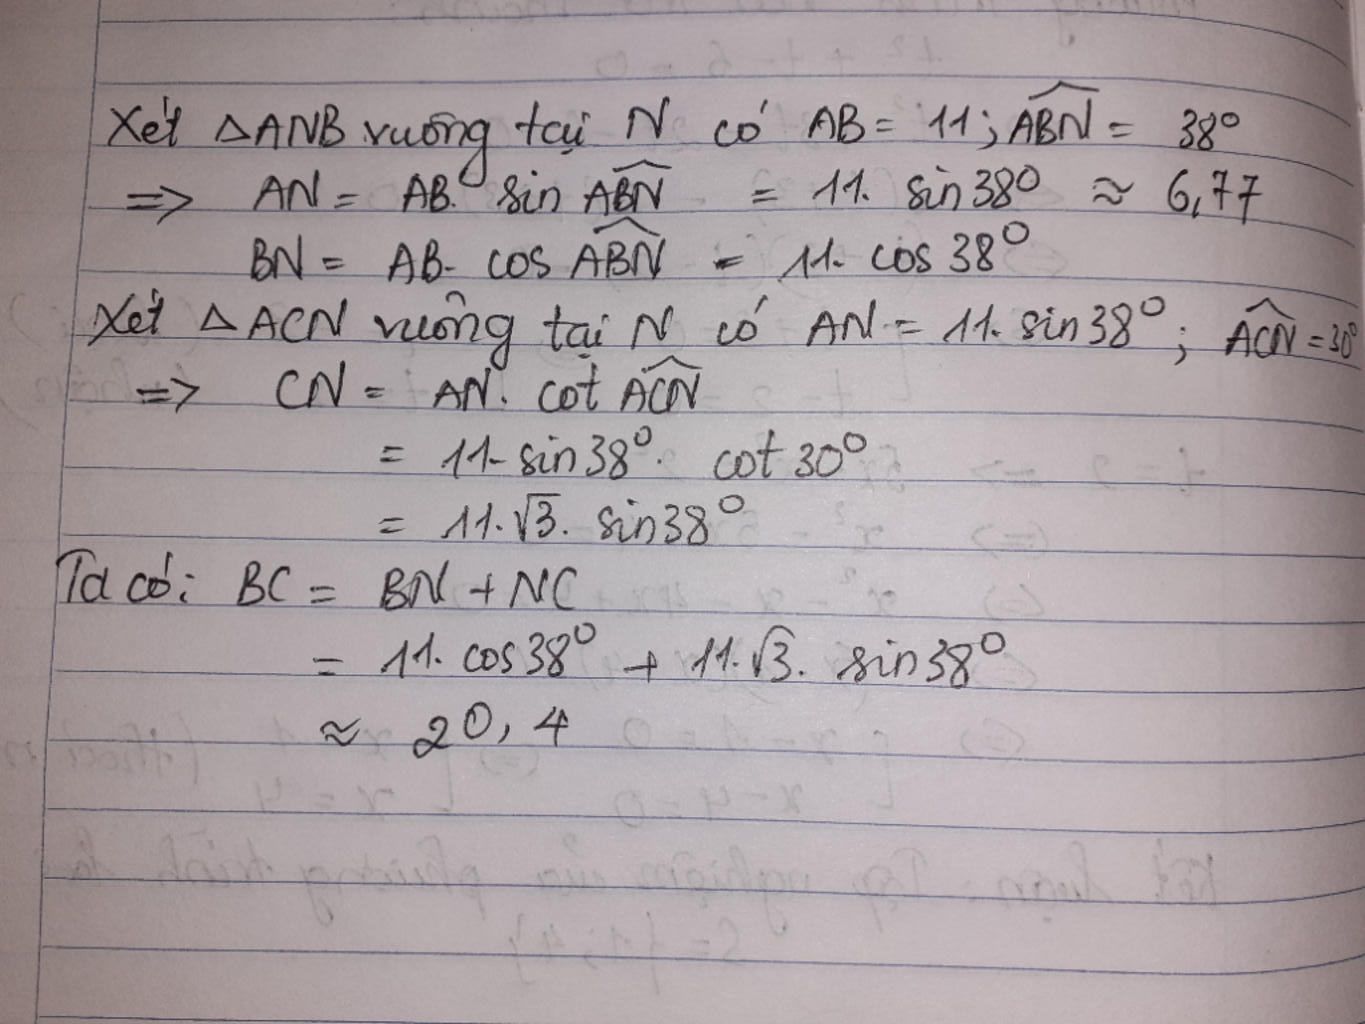 Xét △ANB vuông tại N có AB = 11; \widehat{ABN} = 38°
=> AN = AB. sin \widehat{ABN} = 11. sin38° ≈ 6,77
BN = AB. cos \widehat{ABN} = 11. cos 38°
Xét △ ACN vuông tại N có AN = 11. sin38°; \widehat{ACN} = 30°
=> CN = AN. cot \widehat{ACN}
= 11. sin38°. cot 30°
= 11.√3. sin38°
Ta có: BC = BN + NC
= 11. cos38° + 11.√3. sin38°
≈ 20,4